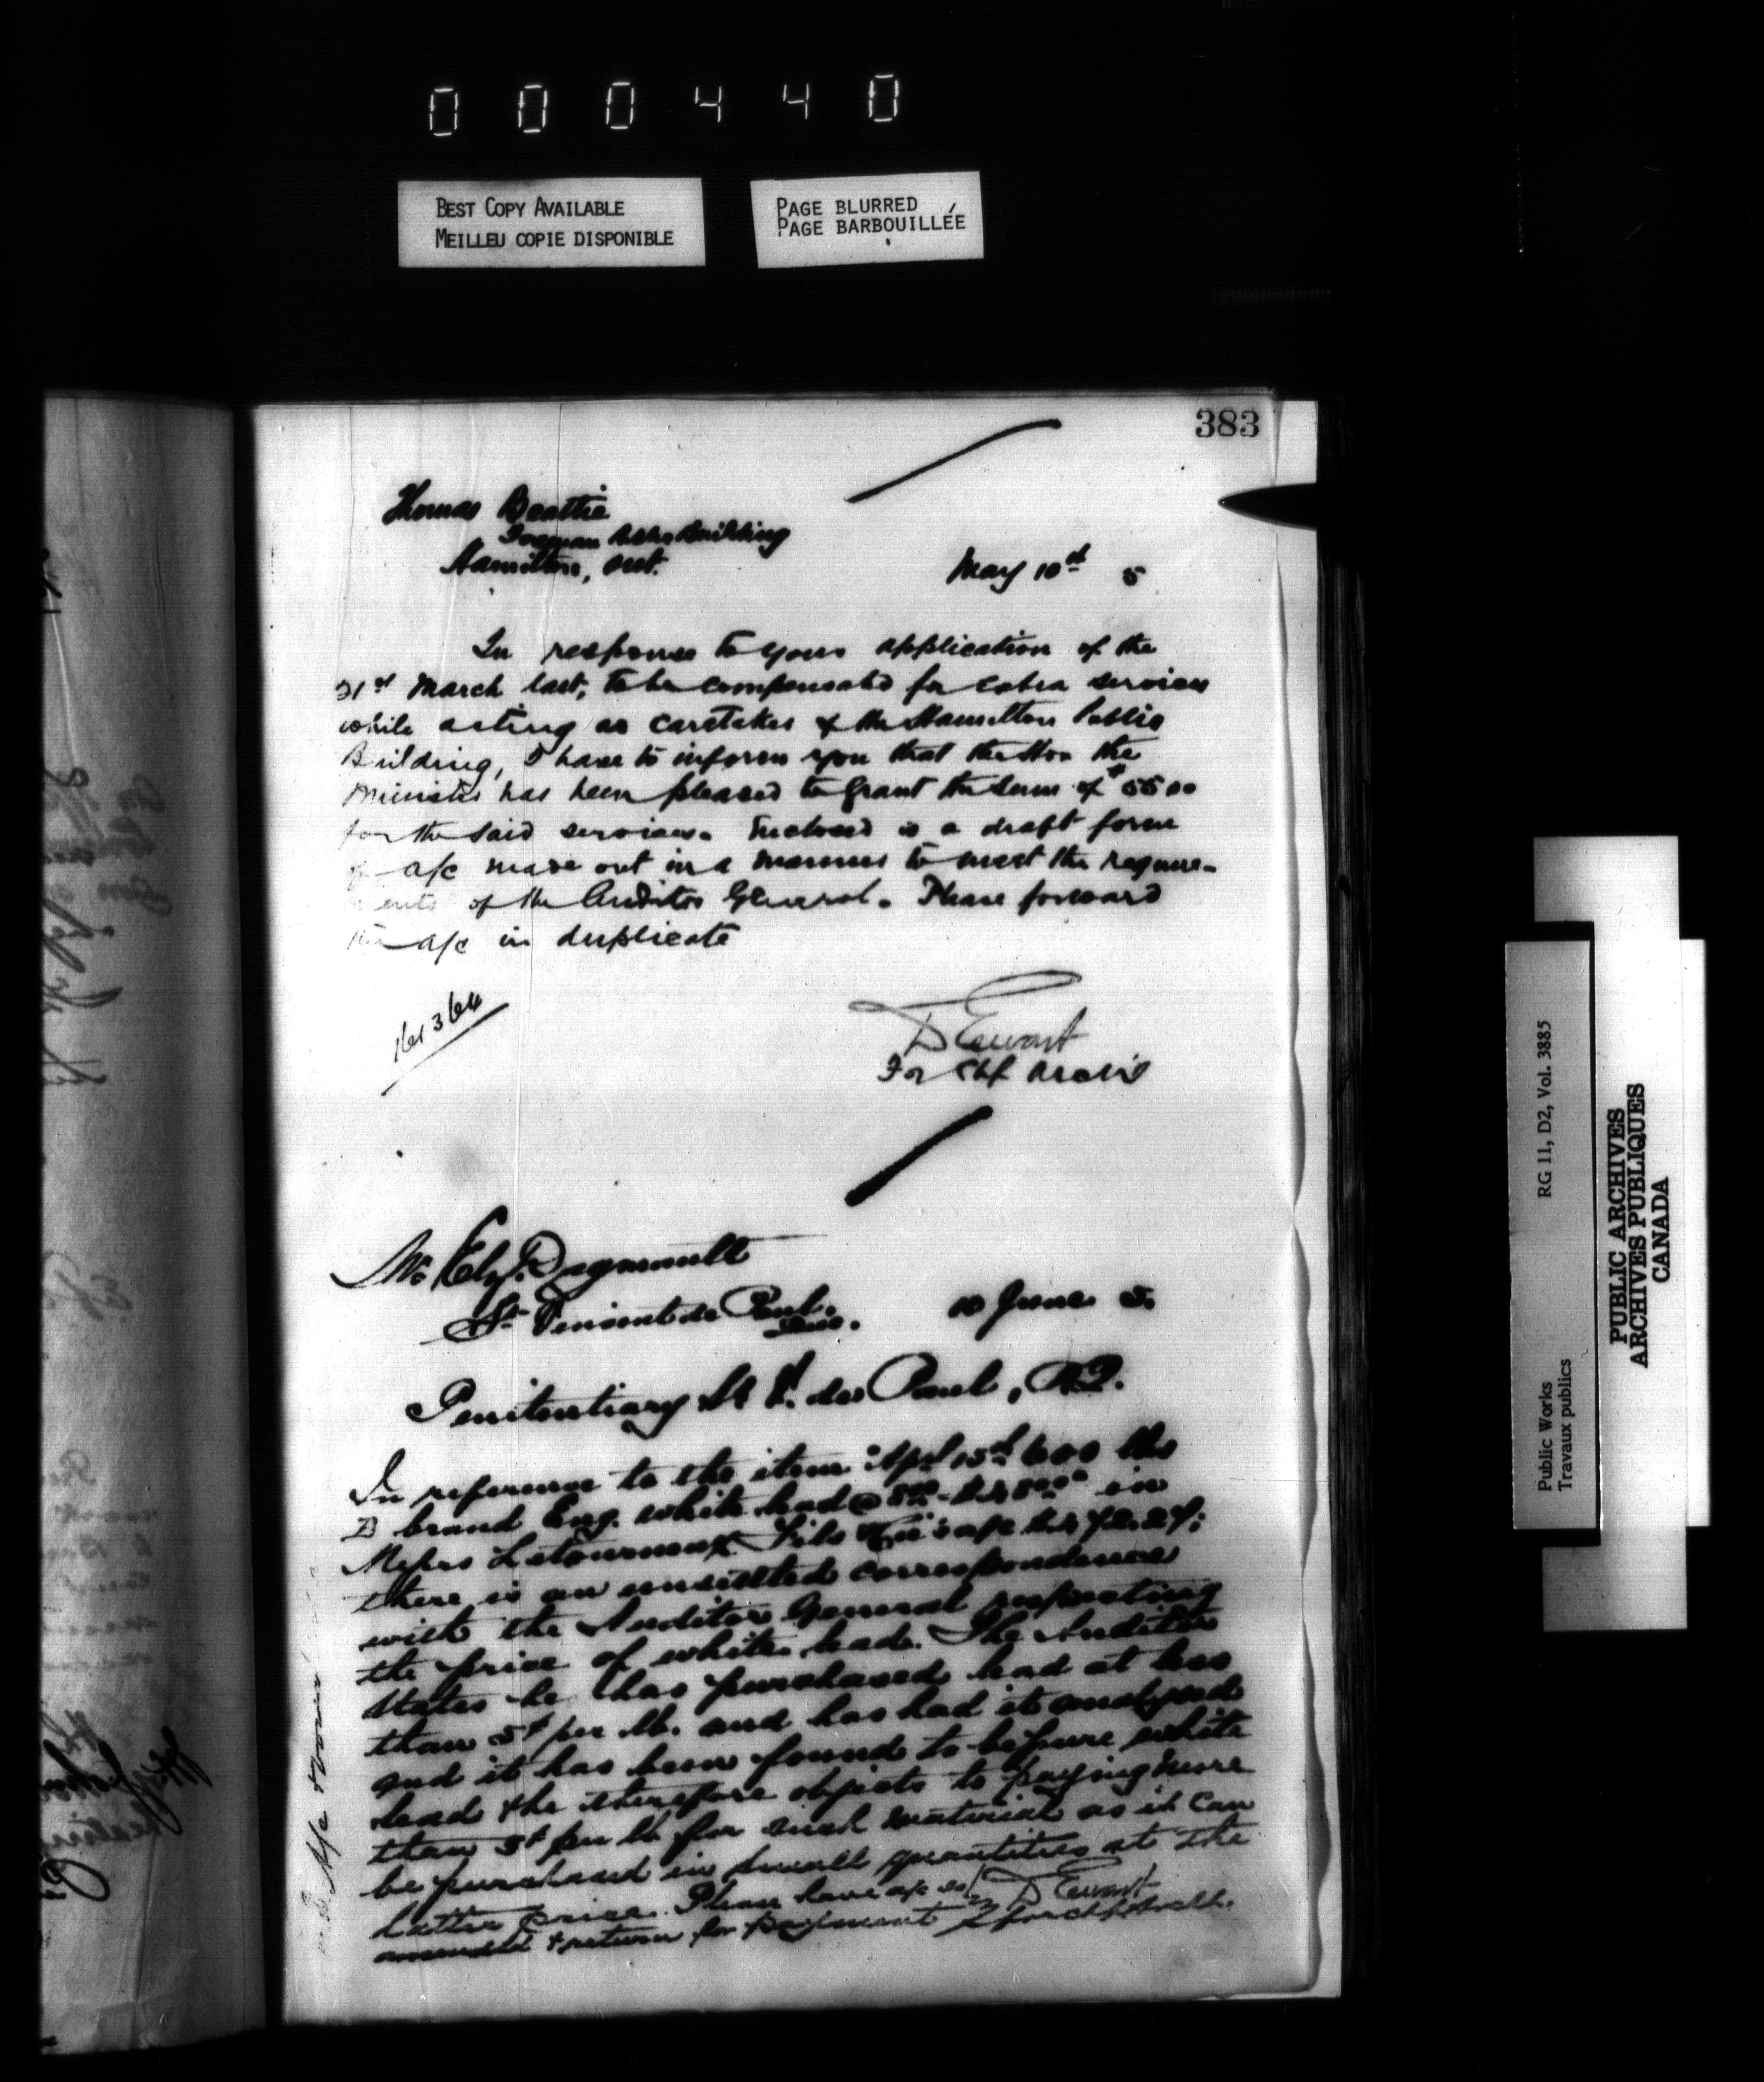 000440
BEST COPY AVAILABLE
MEILLEU COPIE DISPONIBLE
PAGE BLURRED
PAGE BARBOUILLÉE
383
Thomas Beattie
Building
Hamilton, Ont.
May 10th 5
In response to your application of the
31st March last, to be compensated for extra services
while acting as caretaker of the Hamilton Public
Building, I have to inform you that the Hon the
Minister has been pleased to grant the sum of $
for the said services. Enclosed is a draft form
of a/c made out in a manner to meet the require-
ments of the Auditor General. Please forward
the a/c in duplicate
D Ewart
For Chf Archt
Mr
St Vincent de Paul.
10 June 5.
Penitentiary St V. de Paul, P.Q.
In reference to the item Apl 15th 600 lbs
B brand Eng. white lead @ in
Messrs Letourneux Fils a/c
there is an unsettled correspondence
with the Auditor General respecting
the price of white lead. The Auditor
states he has purchased lead at less
than 5¢ per lb. and has had it analysed
and it has been found to be pure white
lead & he therefore objects to paying more
than 5¢ per lb for such material as it can
be purchased in small quantities at the
latter price. Please have a/c so
amended & return for payment
D Ewart
for chf. Archt.
Public Works
Travaux publics
RG 11, D2, Vol. 3885
PUBLIC ARCHIVES
ARCHIVES PUBLIQUES
CANADA